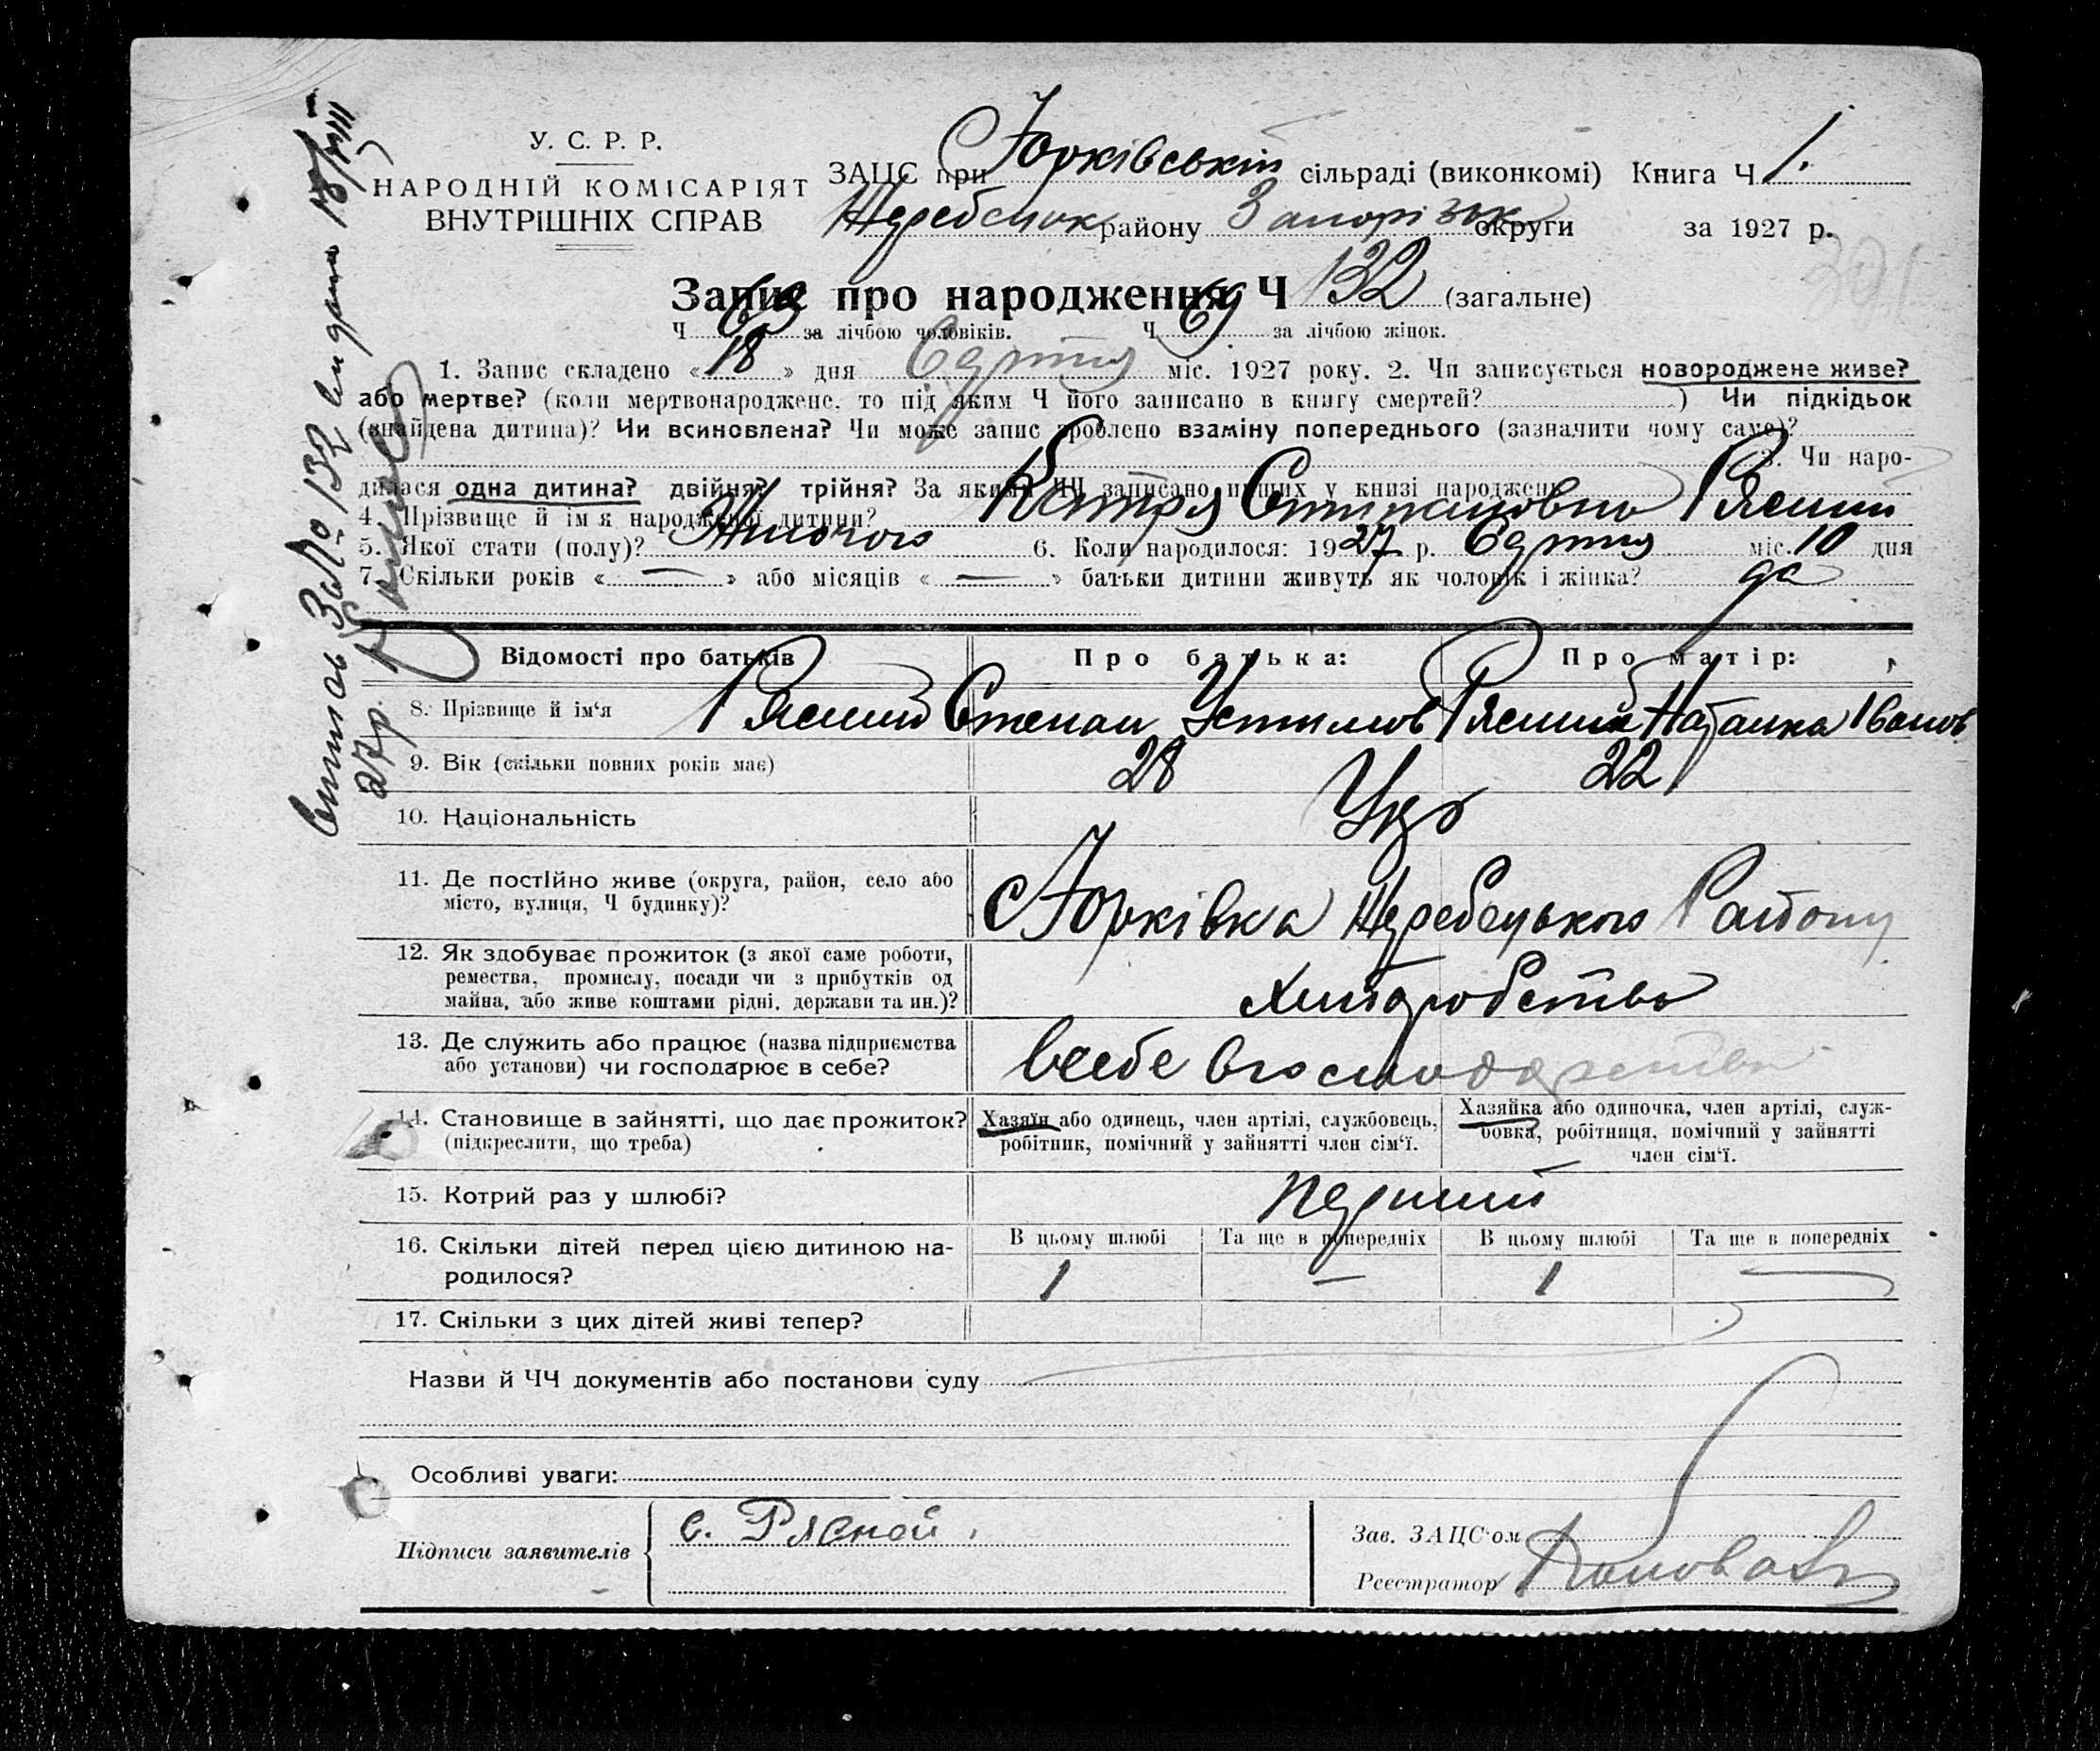 У. С. Р. Р.
НАРОДНІЙ КОМІСАРІЯТ
ВНУТРІШНІХ СПРАВ
ЗАЦС при Юрківській сільраді (виконкомі) Книга Ч 1.
Жеребецьк району Запорізьк округи за 1927 р.
Запис про народження Ч 132 (загальне)
Ч 63 за лічбою чоловіків. Ч 69 за лічбою жінок.
1. Запис складено « 18 » дня Серпня міс. 1927 року. 2. Чи записується новороджене живе?
або мертве? (коли мертвонароджене, то під яким Ч його записано в книгу смертей? ) Чи підкідьок
(знайдена дитина)? Чи всиновлена? Чи може запис зроблено взаміну попереднього (зазначити чому саме)?
3. Чи наро-
дилася одна дитина? двійня? трійня? За якими ЧЧ записано інших у книзі народжень
4. Прізвище й ім я народженої дитини? Катря Степановна Рясний
5. Якої стати (полу)? Жіночого 6. Коли народилося: 1927 р. Серпня міс. 10 дня
7. Скільки років « — » або місяців « — » батьки дитини живуть як чоловік і жінка? да
Відомості про батьків Про батька: Про матір:
8. Прізвище й ім‘я Рясний Степан Устимов Рясний Наталка Іванов
9. Вік (скільки повних років має) 28 22
10. Національність Укр
11. Де постійно живе (округа, район, село або
місто, вулиця, Ч будинку)?
с Юрківка Жеребецького Району
12. Як здобуває прожиток (з якої саме роботи,
ремества, промислу, посади чи з прибутків од
майна, або живе коштами рідні, держави та ин.)?
хліборобство
13. Де служить або працює (назва підприємства
або установи) чи господарює в себе?
всебе вгосподарстві
14. Становище в зайнятті, що дає прожиток?
(підкреслити, що треба)
Хазяїн або одинець, член артілі, службовець,
робітник, помічний у зайнятті член сім‘ї.
Хазяйка або одиночка, член артілі, служ-
бовка, робітниця, помічний у зайнятті
член сім‘ї.
15. Котрий раз у шлюбі? перший
16. Скільки дітей перед цією дитиною на-
родилося?
В цьому шлюбі Та ще в попередніх В цьому шлюбі Та ще в попередніх
1 — 1 —
17. Скільки з цих дітей живі тепер?
Назви й ЧЧ документів або постанови суду
Особливі уваги:
Підписи заявителів с. Рясной.
Зав. ЗАЦС‘ом
Реєстратор
Витяг За № 132 видано 18/VIII
27р.